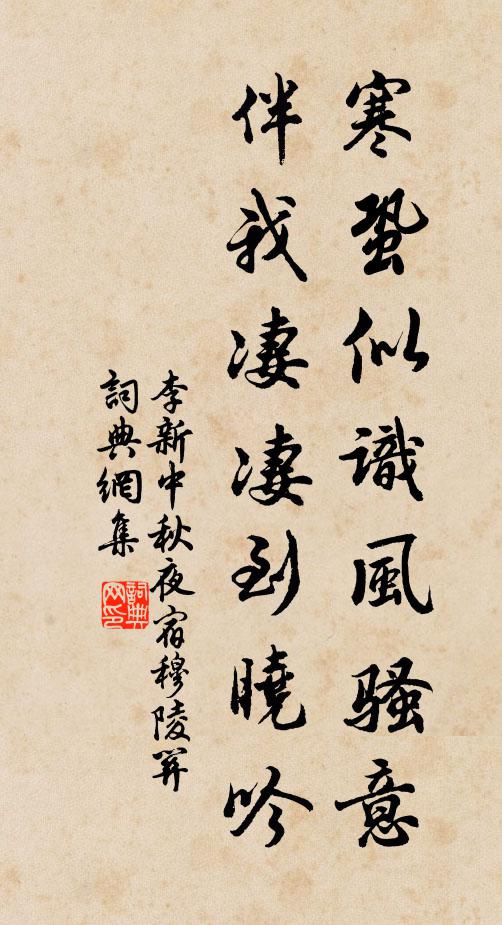 寒蛩似識風騷意
伴我凄凄到曉吟
李新中秋夜宿穆陵關
詞典網集
詞典网印